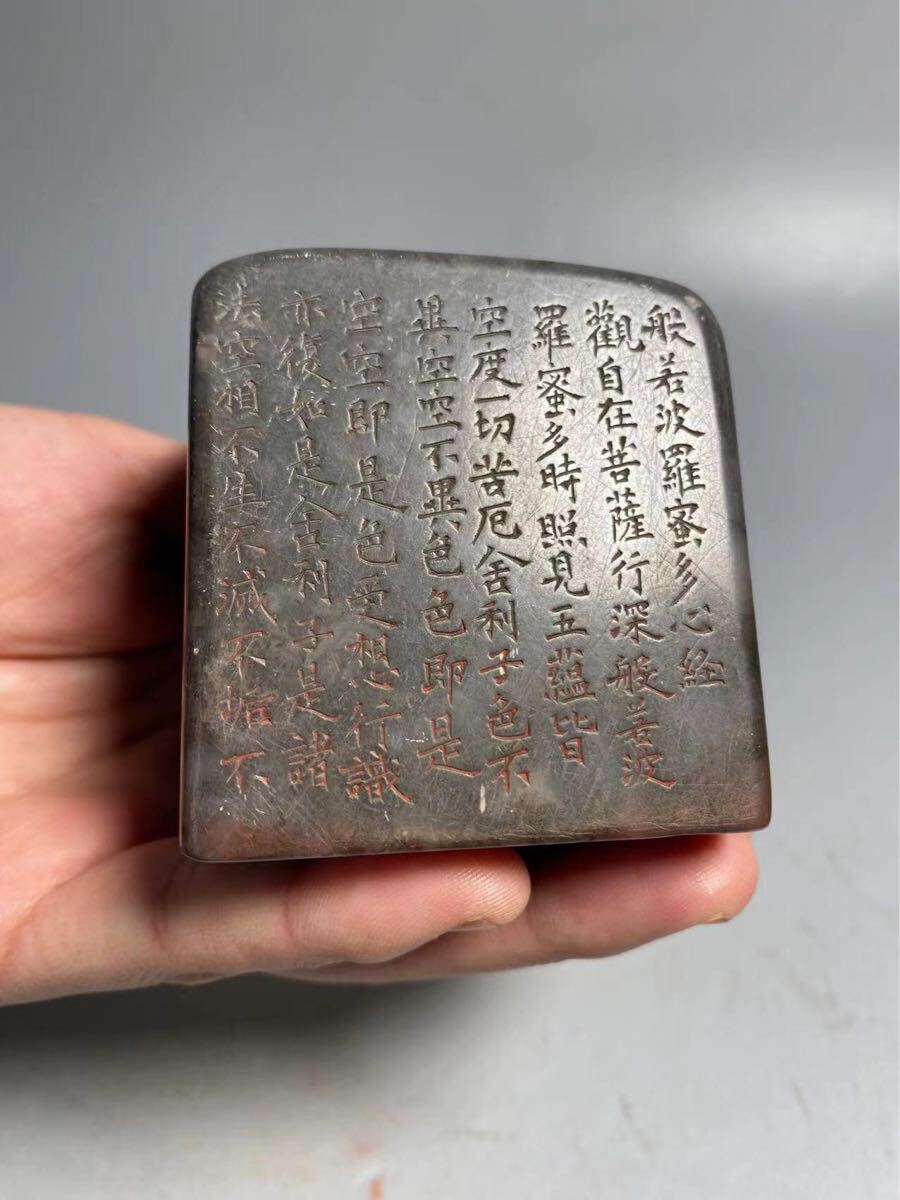 般若波羅蜜多心経
觀自在菩薩行深般若波
羅蜜多時照見五蘊皆
空度一切苦厄舍利子色不
異空空不異色色即是
空空即是色受想行識
亦復如是舍利子是諸
法空相不生不滅不垢不